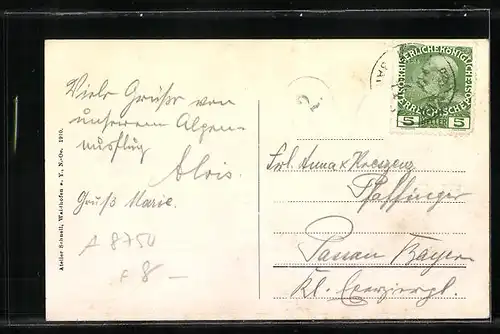 Viele Grüße von
unserem Alpen-
ausflug
Alois.
Gruß Marie.
A 8750
F 8 —
Atelier Schnell, Waidhofen a. Y., N.-Oe. 1910.
KAISERLICHE KÖNIGLICHE
ÖSTERREICHISCHE
5 HELLER 5
Frl. Anna & Kreszenz
Pfaffinger
Passau Bayern
Kl.